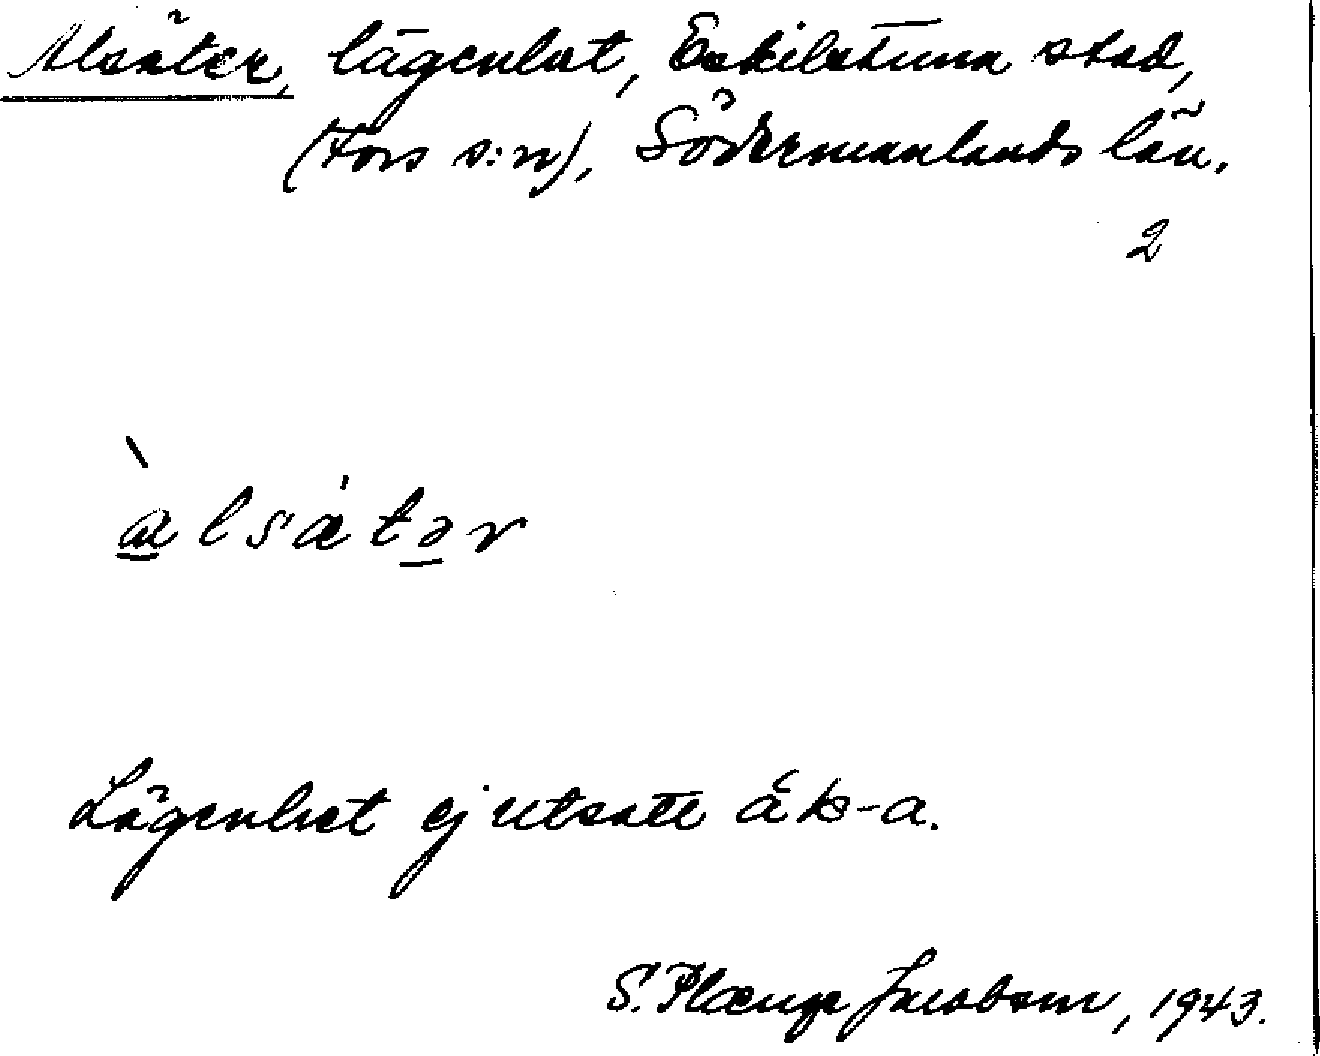 Alsäter, lägenhet, Eskilstuna stad,
(Fors s:n), Södermanlands län.
2
àlsä́tər
Lägenhet ej utsatt å k-a.
S. Plænge Jacobson, 1943.